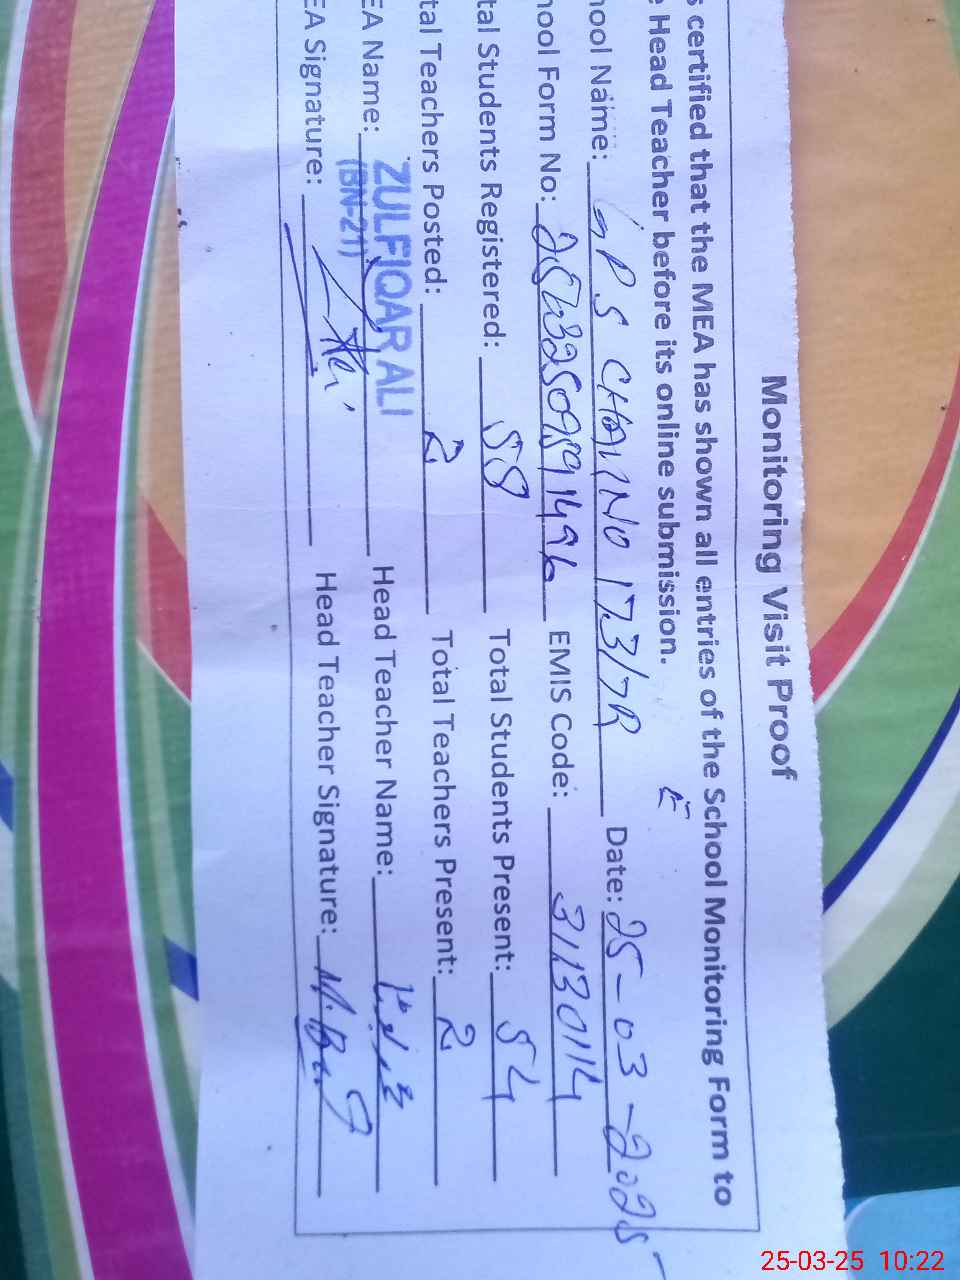 Monitoring Visit Proof
s certified that the MEA has shown all entries of the School Monitoring Form to
e Head Teacher before its online submission.
hool Name: GPS CHAK NO 173/7R Date: 25-03-2025
hool Form No: EMIS Code: 31130114
tal Students Registered: 58 Total Students Present: 54
tal Teachers Posted: 2 Total Teachers Present: 2
EA Name: ZULFIQAR ALI Head Teacher Name:
(BN-21)
EA Signature: Head Teacher Signature:
25-03-25 10:22